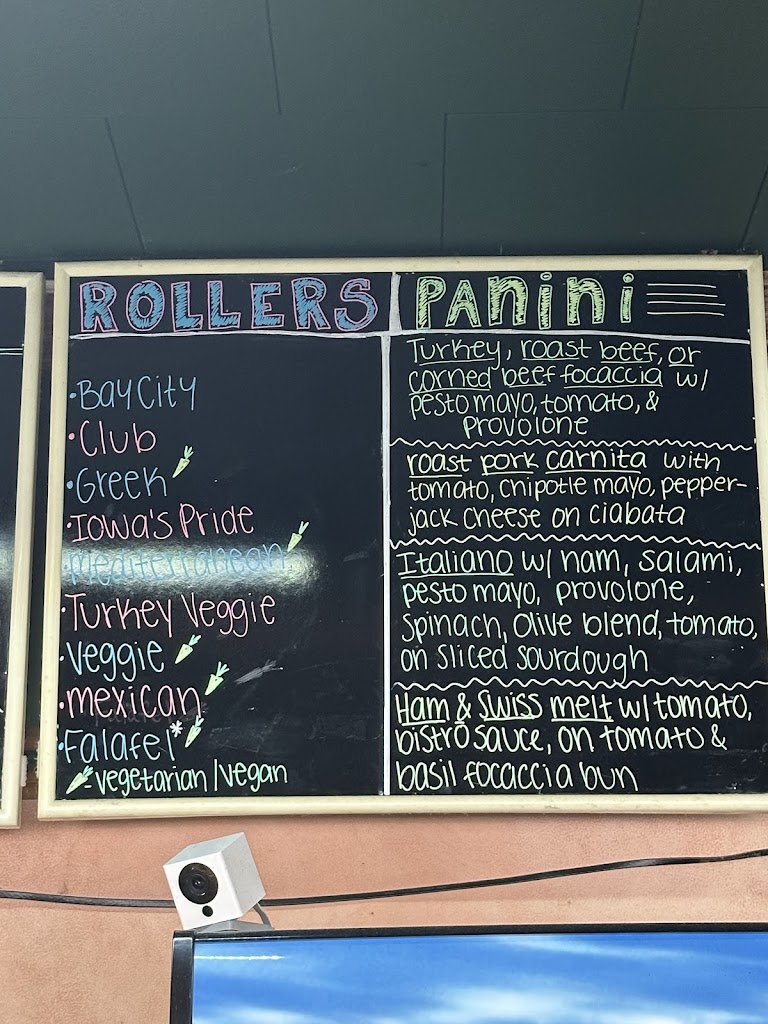 ROLLERS
•Bay City
•Club
•Greek
•Iowa's Pride
•mediterranean
•Turkey Veggie
•Veggie
•mexican
•Falafel*
-vegetarian/vegan
PANini
Turkey, roast beef, or
corned beef focaccia w/
pesto mayo, tomato, &
provolone
roast pork carnita with
tomato, chipotle mayo, pepper-
jack cheese on ciabata
Italiano w/ ham, salami,
pesto mayo, provolone,
Spinach, Olive blend, tomato,
on sliced sourdough
Ham & Swiss melt w/ tomato,
bistro sauce, on tomato &
basil focaccia bun